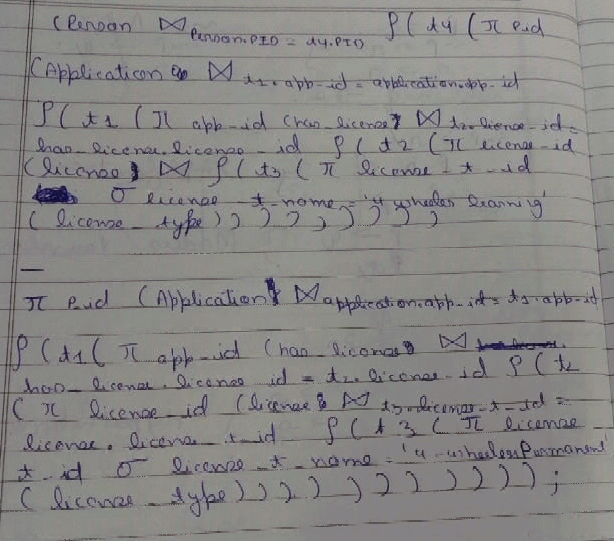 (Person ⋈ Person.PID = t4.PID ρ(t4 (π P_id
(Application ⋈ t1.app-id = application.app-id
ρ(t1 (π app-id (has_license ⋈ t2.license-id =
has_license.license-id ρ(t2 (π license-id
(license ⋈ ρ(t3 (π license-t-id
σ license-t-name = '4 wheeler learning'
(license-type))))))))
—
π P_id (Application ⋈ application.app-id = t1.app-id
ρ(t1(π app-id (has_license ⋈
has_license.license id = t2.license-id ρ(t2
(π license-id (license ⋈ t3.license-t-id =
license.license-t-id ρ(t3(π license-
t-id σ license-t-name = '4-wheeler Permanent'
(license-type))))))))));